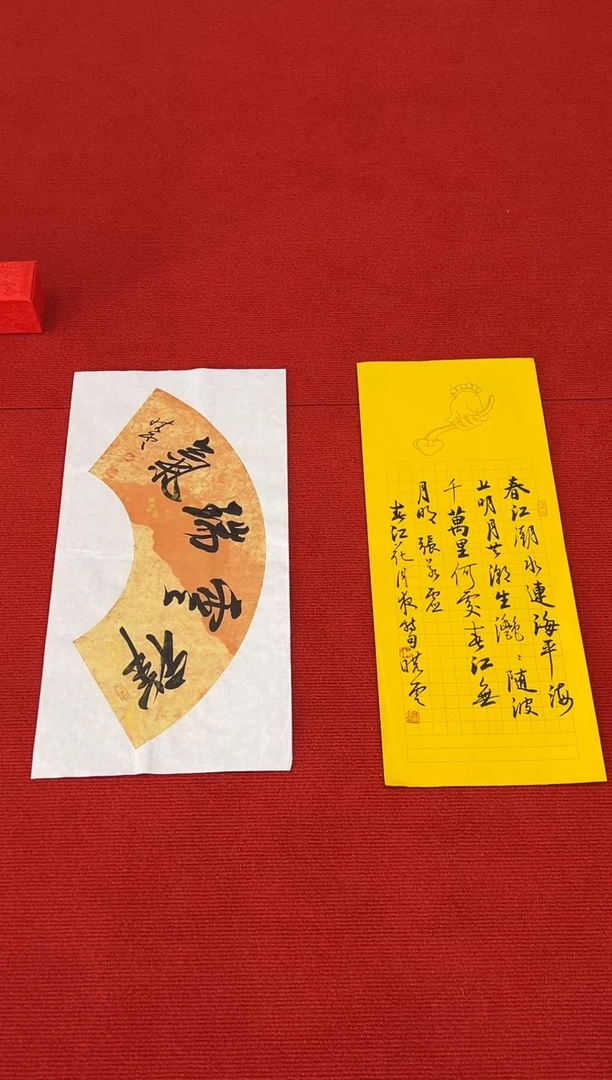 祥雲瑞氣
春江潮水連海平海
上明月共潮生灔〻随波
千萬里何處春江無
月明 張若虛
春江花月夜